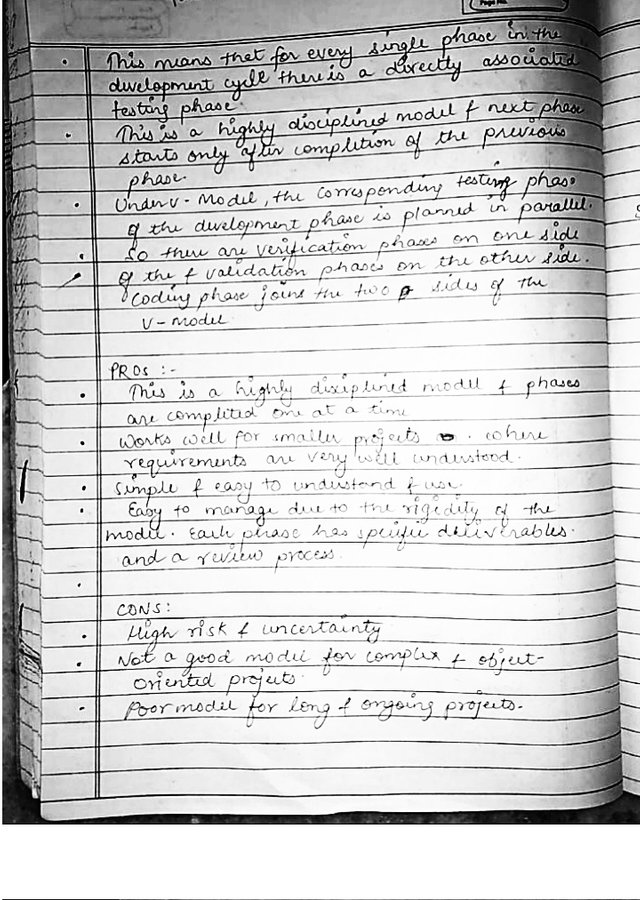 • This means that for every single phase in the
development cycle there is a directly associated
testing phase.
• This is a highly disciplined model & next phase
starts only after completion of the previous
phase.
• Under V-Model, the corresponding testing phase
of the development phase is planned in parallel.
• So there are verification phases on one side
of the & validation phases on the other side.
Coding phase joins the two sides of the
V-model
PROS :-
• This is a highly disciplined model & phases
are completed one at a time
• Works well for smaller projects . where
requirements are very well understood.
• Simple & easy to understand & use.
• Easy to manage due to the rigidity of the
model. Each phase has specific deliverables.
and a review process.
•
CONS:
• High risk & uncertainty
• Not a good model for complex & object-
oriented projects.
• Poor model for long & ongoing projects.